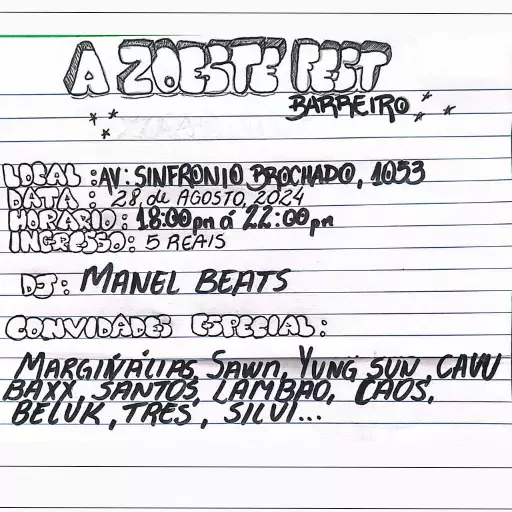 A ZOESTE FEST
BARREIRO
LOCAL : AV: SINFRONIO BROCHADO, 1053
DATA : 28, de AGOSTO, 2024
HORARIO : 18:00pm á 22:00pm
INGRESSO: 5 REAIS
DJ: MANEL BEATS
CONVIDADES ESPECIAL:
MARGINÁLIAS, SAWN, YUNG SUN, CAVU
BAXX, SANTOS, LAMBAO, CAOS,
BELUK, TRES, SILVI...